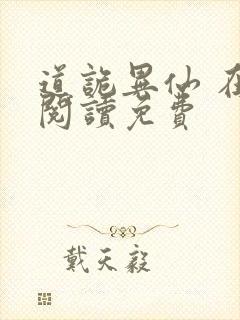 道詭異仙 在
閱讀免費
戴天毅